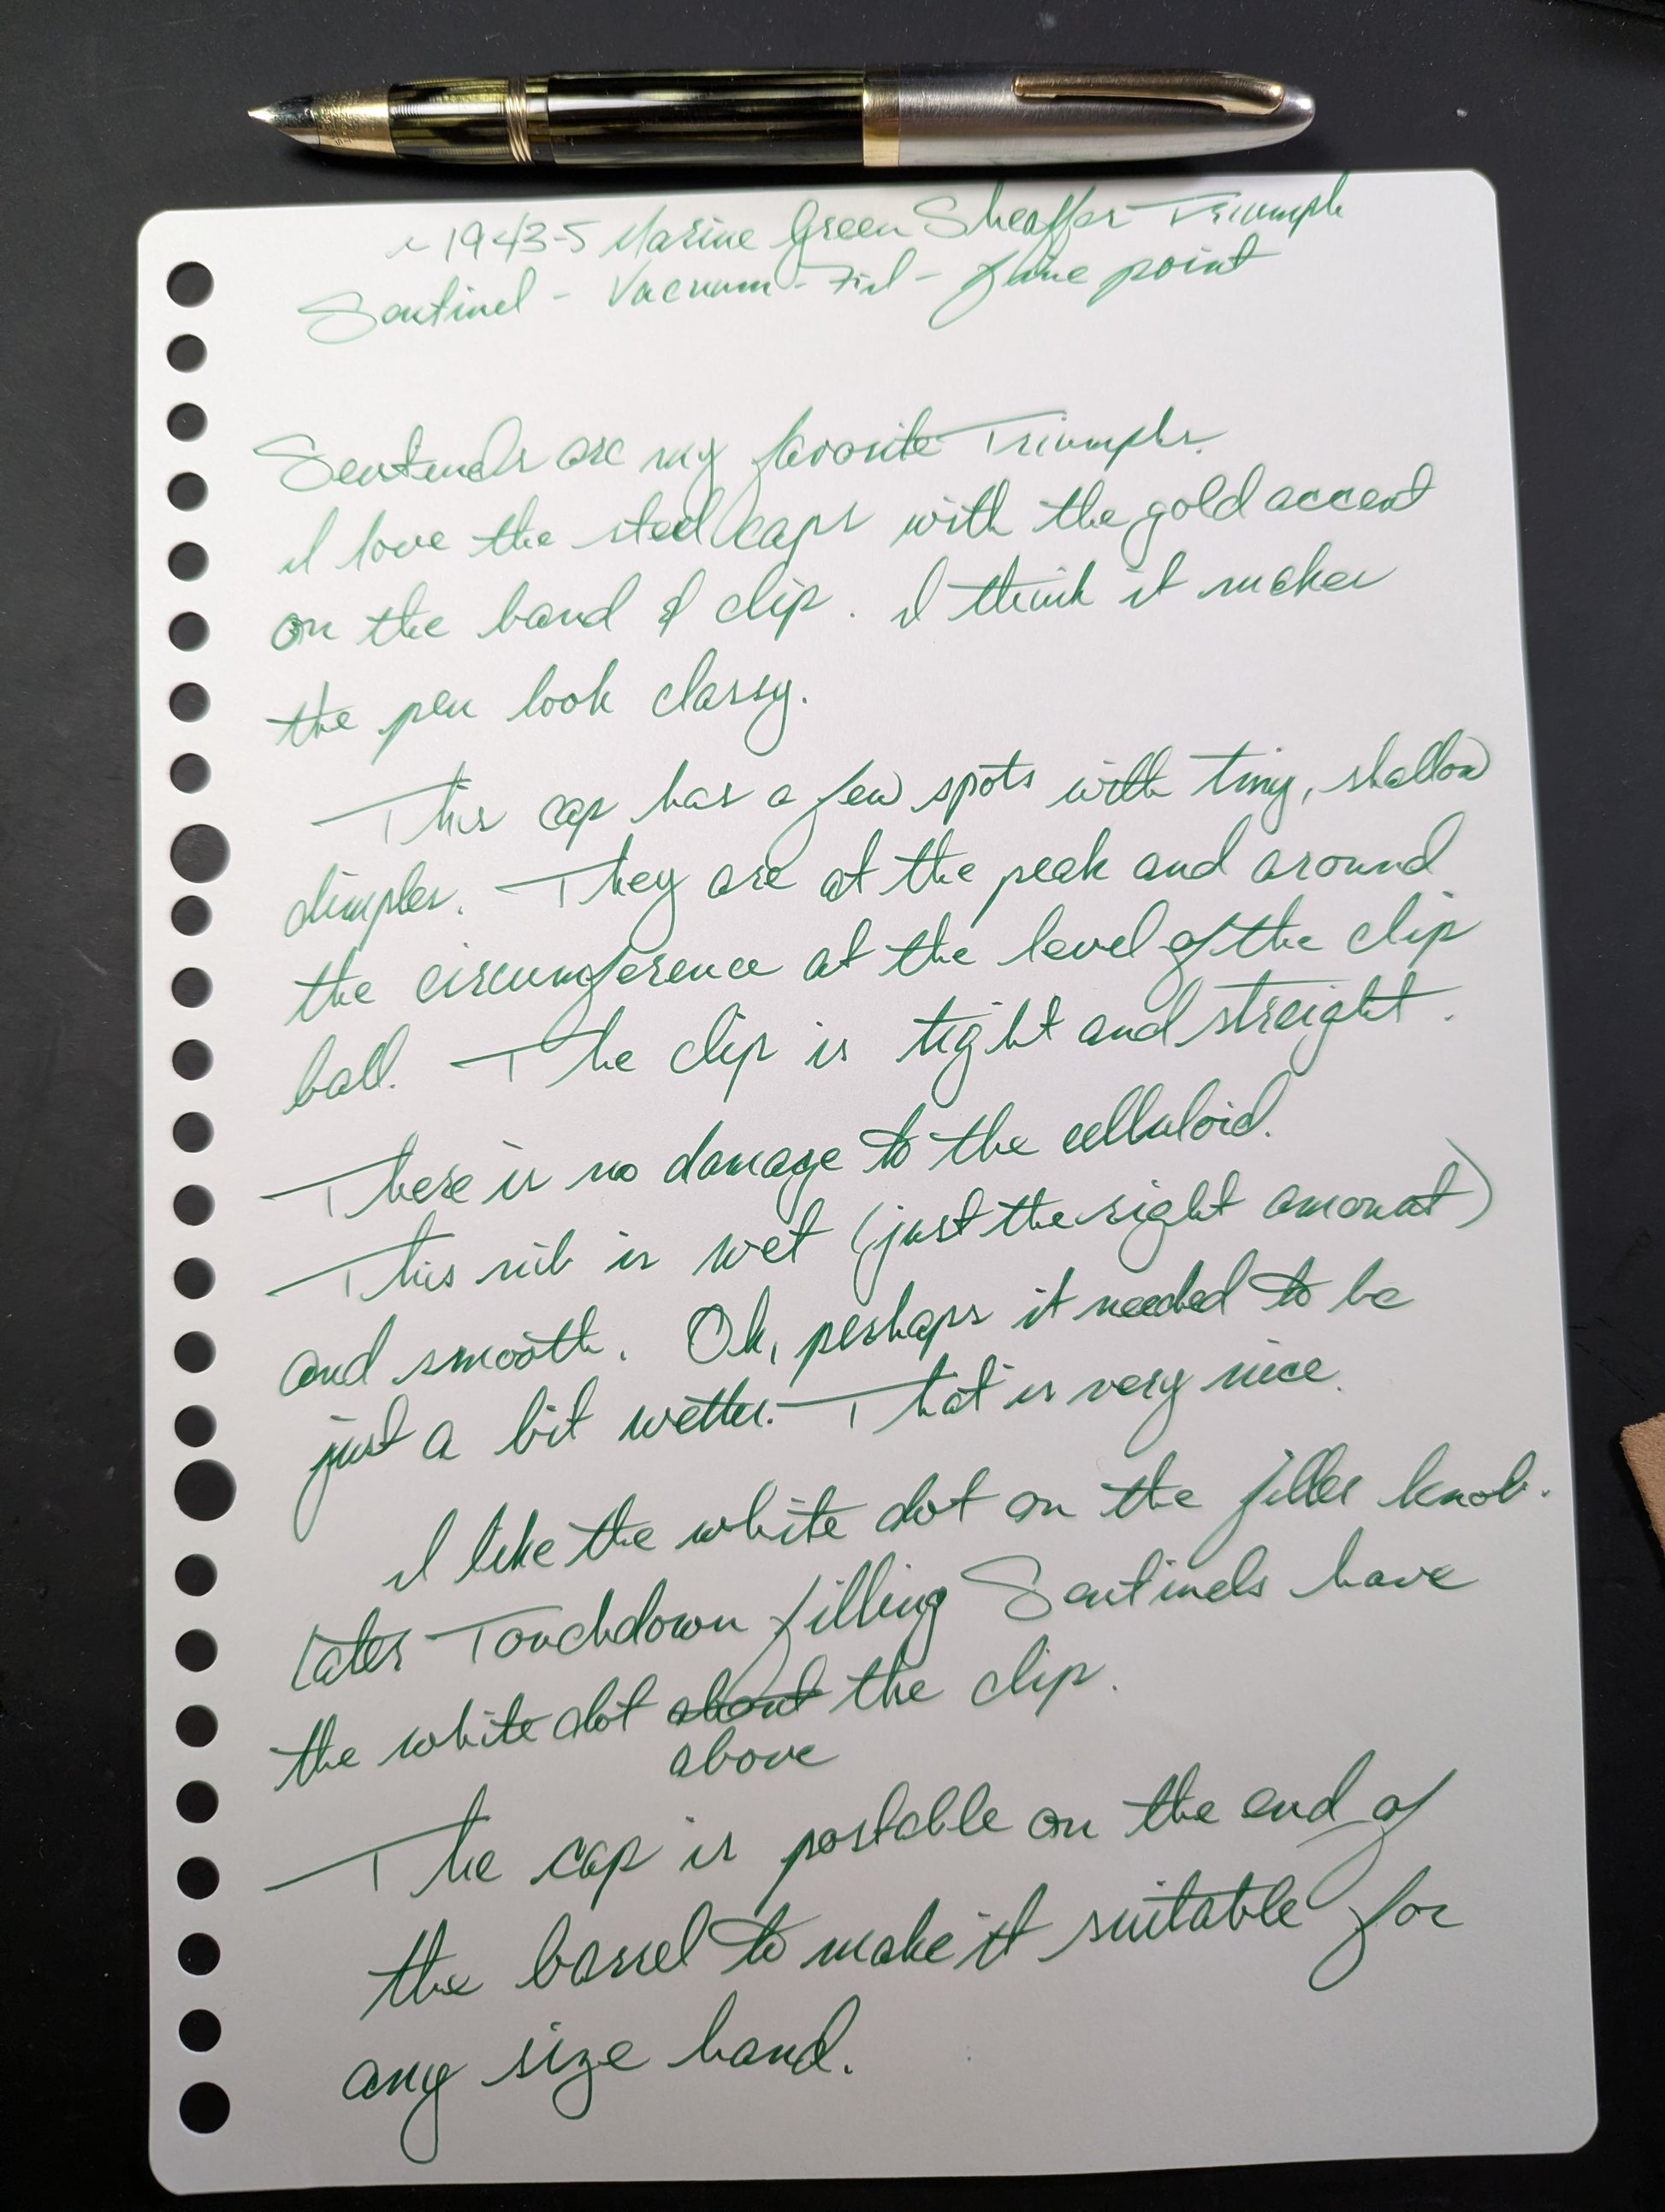 ~ 1943-5 Marine Green Sheaffer Triumph
Sentinel - Vacuum-Fil - fine point
Sentinels are my favorite Triumphs.
I love the steel caps with the gold accent
on the band & clip. I think it makes
the pen look classy.
This cap has a few spots with tiny, shallow
dimples. They are at the peak and around
the circumference at the level of the clip
ball. The clip is tight and straight.
There is no damage to the celluloid.
This nib is wet (just the right amount)
and smooth. Oh, perhaps it needed to be
just a bit wetter. That is very nice.
I like the white dot on the filler knob.
Later Touchdown filling Sentinels have
the white dot about the clip.
above
The cap is postable on the end of
the barrel to make it suitable for
any size hand.